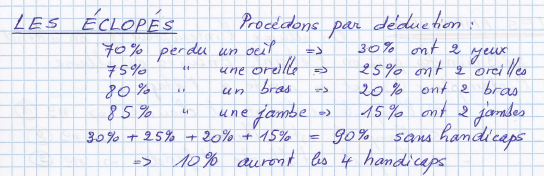 LES ÉCLOPÉS Procédons par déduction :
70% perdu un oeil => 30% ont 2 yeux
75% " une oreille => 25% ont 2 oreilles
80% " un bras => 20% ont 2 bras
85% " une jambe => 15% ont 2 jambes
30% + 25% + 20% + 15% = 90% sans handicaps
=> 10% auront les 4 handicaps